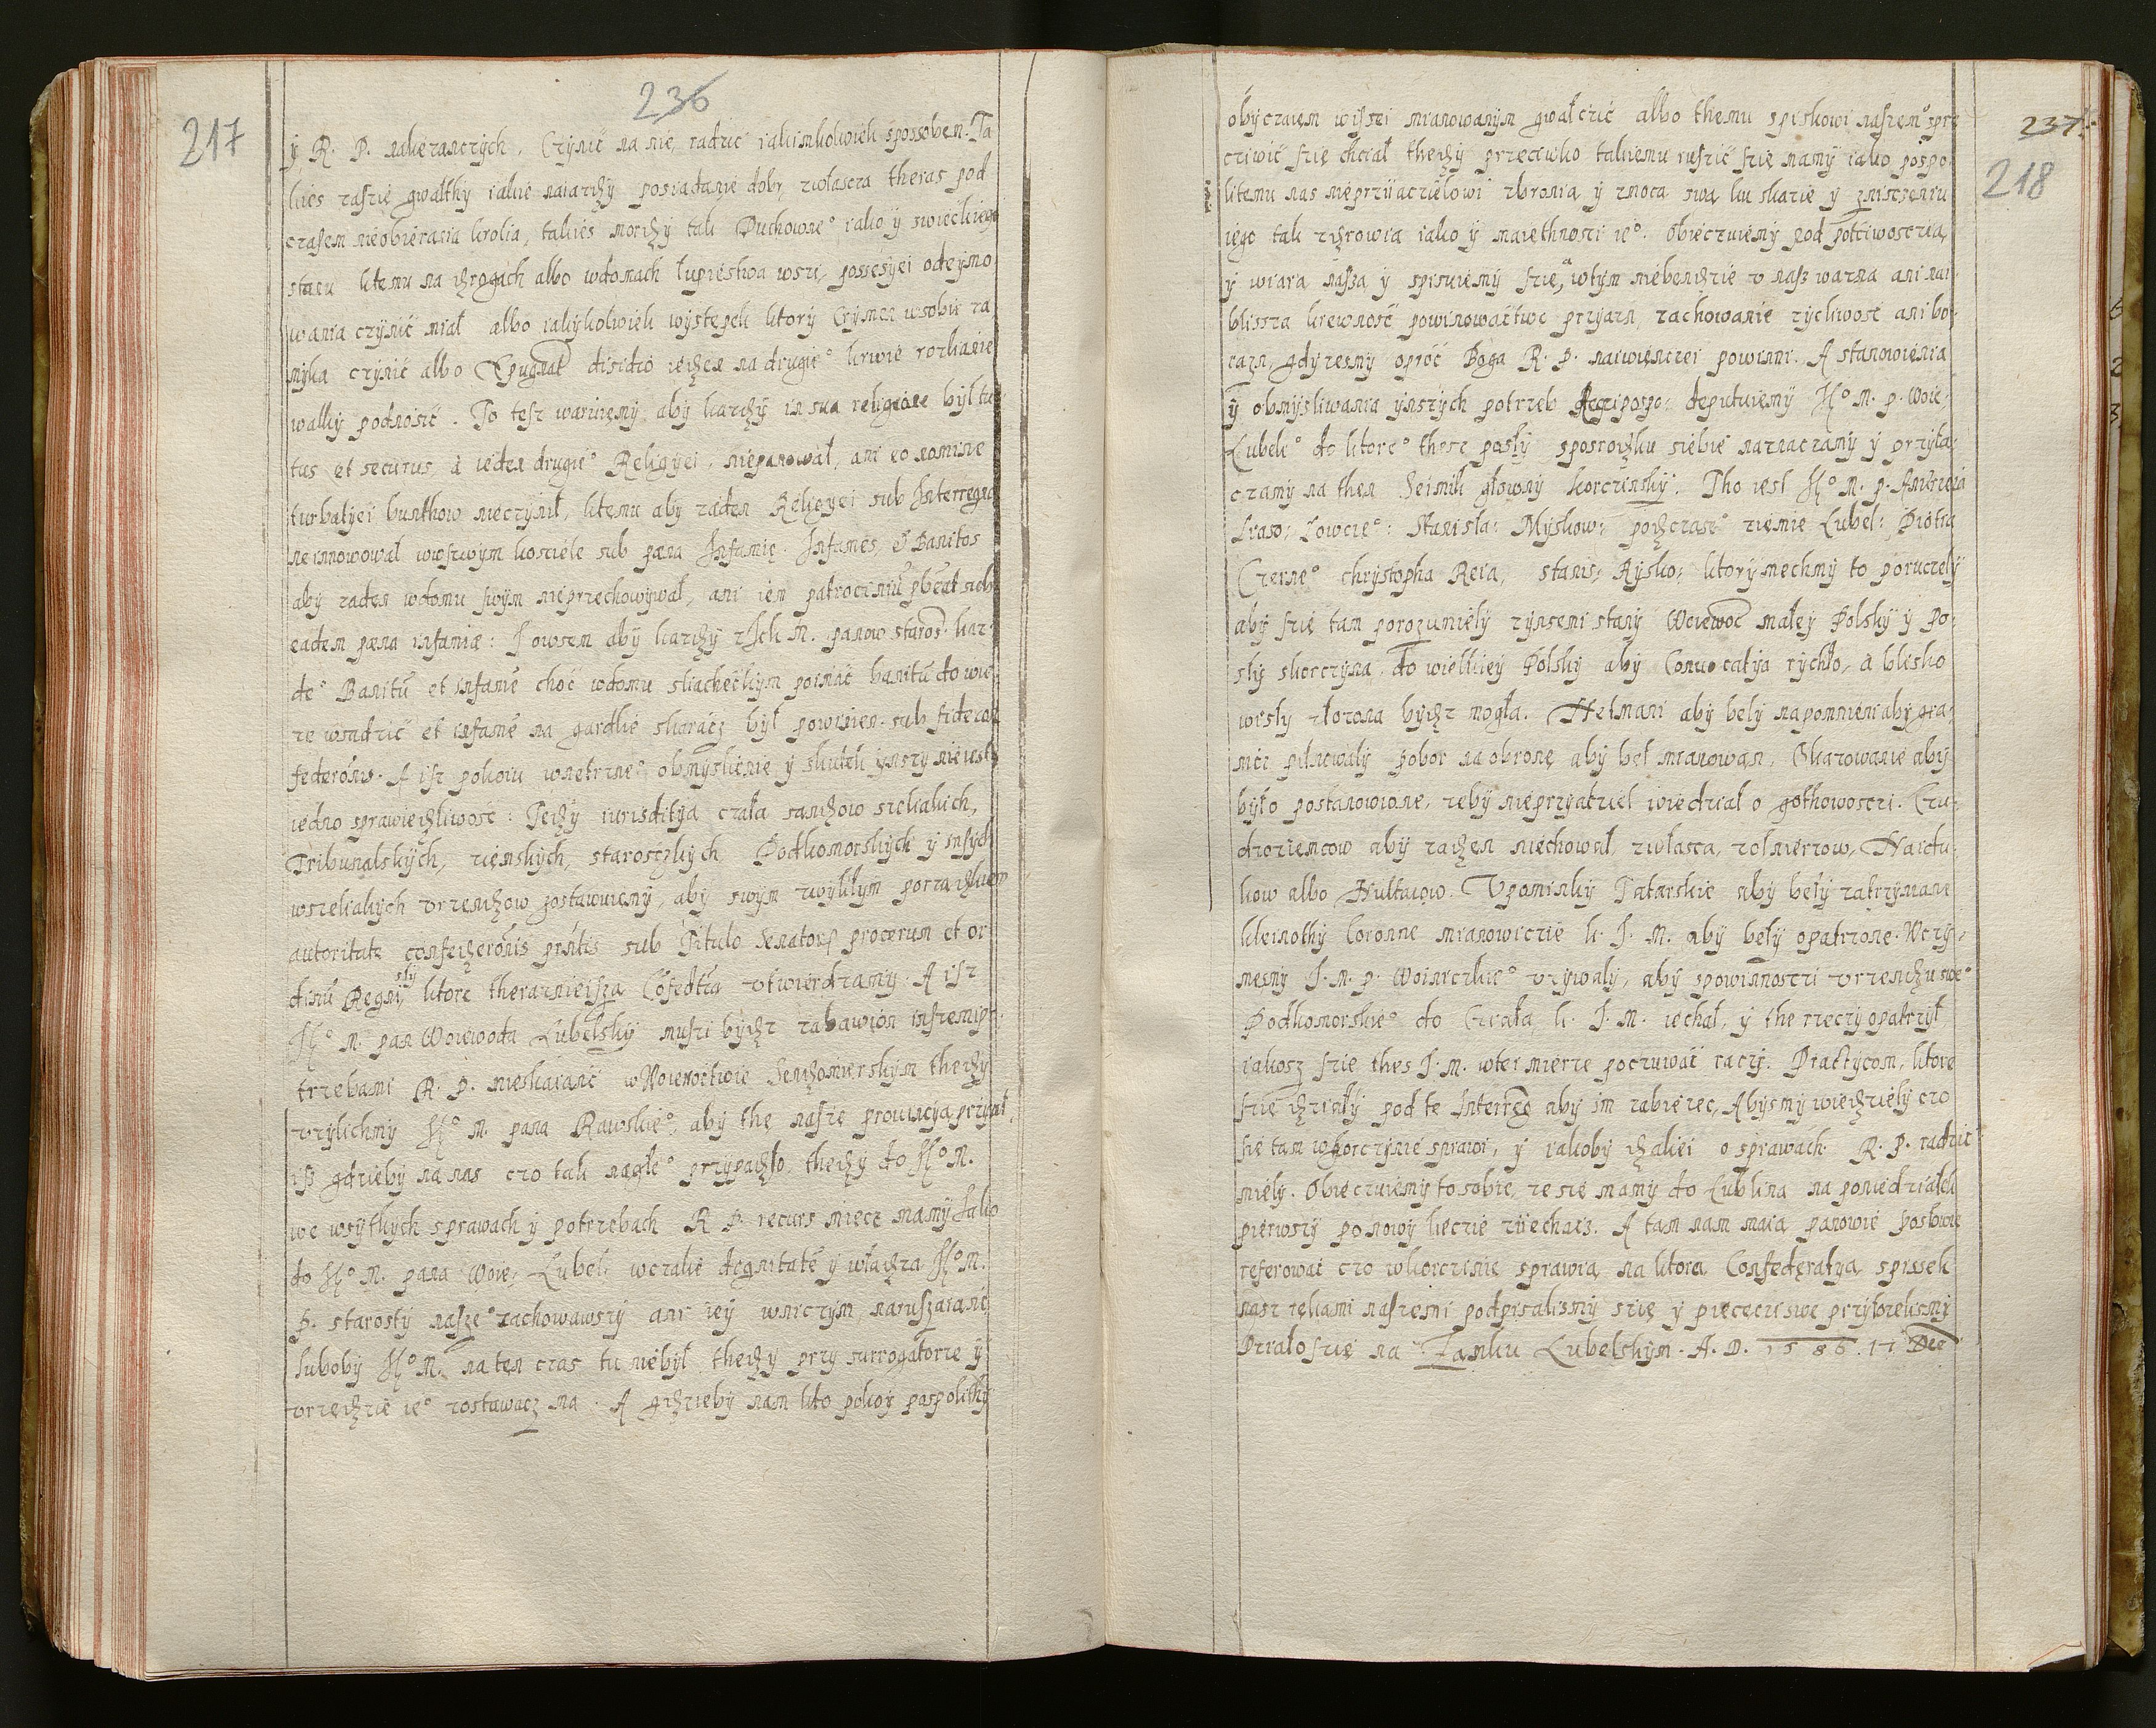 236
217
ÿ R. P. należanczych. Czÿnić na nie radzić iakimkolwiek sposoben. Ta
kies zaszie gwałthÿ iakie naiazdÿ posiadanie dobr, zwłascza theras pod
czasem nieobierania krolia, takies mordÿ tak Duchowne° iako ÿ swieckiego
stanu ktemu na drogach albo wdomach łupiestwa wszi, possesÿei odeÿmo
wania czÿnić miał albo iakÿkolwiek wÿstepek ktorÿ Crÿmen wsobie za
mÿka czÿnić albo disidio ieden na drugie° krwie rozlianie
walkÿ podnosić. To tesz waruiemÿ, abÿ kazdÿ in sua religione bÿl tu
tus et securus à ieden drugie° Religÿei, nie panował, ani eo nomine
turbatÿei bunthow nieczÿnił, ktemu abÿ zaden Religÿei sub Interregno
neinnowował wwszwÿm kosciele sub pæna Infamię. Infames, et Banitos
abÿ zaden wdomu swÿm nieprzechowÿwał, ani iem patrociniũ pbeat sub
eadem pæna infamiæ: I owsem abÿ kazdÿ zIch M. panow staros. kaz
de° Banitũ et infamẽ choć wdomu sliacheckÿm poimać banitũ do wie
ze wsadzić et infamẽ na gardlie skaracz bÿł powinien sub fide con
federõnis. A isz pokoiu wnetrzne° obmÿslienie ÿ skutek ÿnszÿ nieiest
iedno sprawiedliwość: Tedÿ iurisditÿa czała sandow szeliakich,
Tribunalskÿch, ziemskÿch, staroscżkÿch Podkomorskÿch ÿ inszÿch
wszeliakÿch vrzendow zostawuiemÿ, abÿ swÿm zwÿkłÿm porzadkiem
autoritate confederõnis prñtis sub Titulo Senatorũ procerum et or
dinũ Regni ktore theraznieisza Cõfedtia vtwierdzamÿ. A isz
J° M. pan Woiewoda Lubelskÿ muszi bÿdz zabawion inszemi po
trzebami R. P. nieskaianć w Woiewoctwie Sendomierskÿm thedÿ
vzÿlichmÿ J° M. pana Rawskie°, abÿ the nasze prouincÿa przÿiał,
isz gdziebÿ na nas czo tak nagłe° przÿpadło, thedÿ do J° M.
we wsÿtkÿch sprawach ÿ potrzebach R P. recurs miecz mamÿ Jako
do J° M. pana Woie: Lubel: wczalie dignitatẽ ÿ władza J° M.
P. starostÿ nasze° zachowawszÿ ani ieÿ wniczÿm, naruszaianć
lubobÿ J° M. na ten czas tu niebÿł thedÿ przÿ surrogatorze ÿ
vrzedzie ie° zostawacz ma. A gdziebÿ nam kto pokoÿ pospolithÿ
237.
218
obÿczaiem wissei mianowanÿm gwałczić albo themu spiskowi naszemu sprze
cziwić szie chciał thedÿ przeciwko takiemu ruszić szie mamÿ iako pospo
litemu nas nieprzÿiaczielowi zbronia ÿ znoca swa ku skazie ÿ zniszczeniu
iego tak zdrowia iako ÿ maiethnosci ie°. Obieczuiemÿ pod potciwosczia,
ÿ wiara nasza ÿ spisuiemÿ szie, a wtÿm niebendzie v nasz wazna ani nai
blissza krewnosć powinowactwo przÿazn, zachowanie zÿcliwosć ani bo
iazn, gdÿzesmÿ oproć Boga R. P. naiwienczei powinni. A stanowienia
ÿ obmÿsliwania ÿnszÿch potrzeb pospo: deputuiemÿ J° M. p. Woie:
Lubelk° do ktore° these posłÿ sposrodku siebie naznaczamÿ ÿ przÿła
czamÿ na then Seimik głownÿ korczinskÿ. Tho iest J° M. p. Andrzeia
Łowcze°: Stanisła: Mÿskow: podczasz° ziemie Lubel: Piotra
Czerne° Chrÿstopha Reia, Stanis: Rÿsko: ktorÿmechmÿ to poruczelÿ
abÿ szie tam porozumielÿ zÿnsemi stanÿ Woiewoc małeÿ Polskÿ ÿ Po
slÿ skorczÿna, do wielkieÿ Polskÿ abÿ Conuocatÿa rÿchło, à blisko
wislÿ złozona bÿdz mogła. Hetmani abÿ belÿ napomnieni abÿ gra
nicz pilnowalÿ pobor na obronę abÿ beł mianowan, Okazowanie abÿ
bÿło postanowione, zebÿ nieprzÿatziel wiedział o gothowoscti. Cu
dzoziemcow abÿ zaden niechował, zwłasca, zołnierzow, Haidu
kow albo Hultaiow. Vpominkÿ Tatarskie abÿ belÿ zatrzÿmane
kleinothÿ Coronne mianowiczie k. J. M. abÿ belÿ opatrzone. Wczÿ
nesmÿ J. M. p. Woinickie° vzÿwalÿ, abÿ spowinnosczi vrzendu swe°
Podkomorskie° do Cziała k. J. M. iechał, ÿ the rzeczÿ opatrzÿł
iakosz szie thes J. M. wtei mierze poczuwać raczÿ. Practÿcom, ktore
szie dzialÿ pod te Interreg abÿ im zabiezec, Abÿsmÿ wiedzielÿ czo
sie tam wkorczÿnie sprawi, ÿ iakobÿ daliei o sprawach R. P. radzić
mielÿ. Obieczuiemÿ to sobie, ze sie mamÿ do Lublina na poniedziałek
pierwszÿ po nowÿ liecie ziiechacz. A tam nam maia panowie Posłowie
referować czo wkorczinie sprawia, na ktora Confederatÿa spissek
nasz rękami naszemi podpisalismÿ szię ÿ pieczecie swe przÿłozelismÿ
Działo szie na Zamku Lubelskÿm. A. D. 1586. 17 Dec